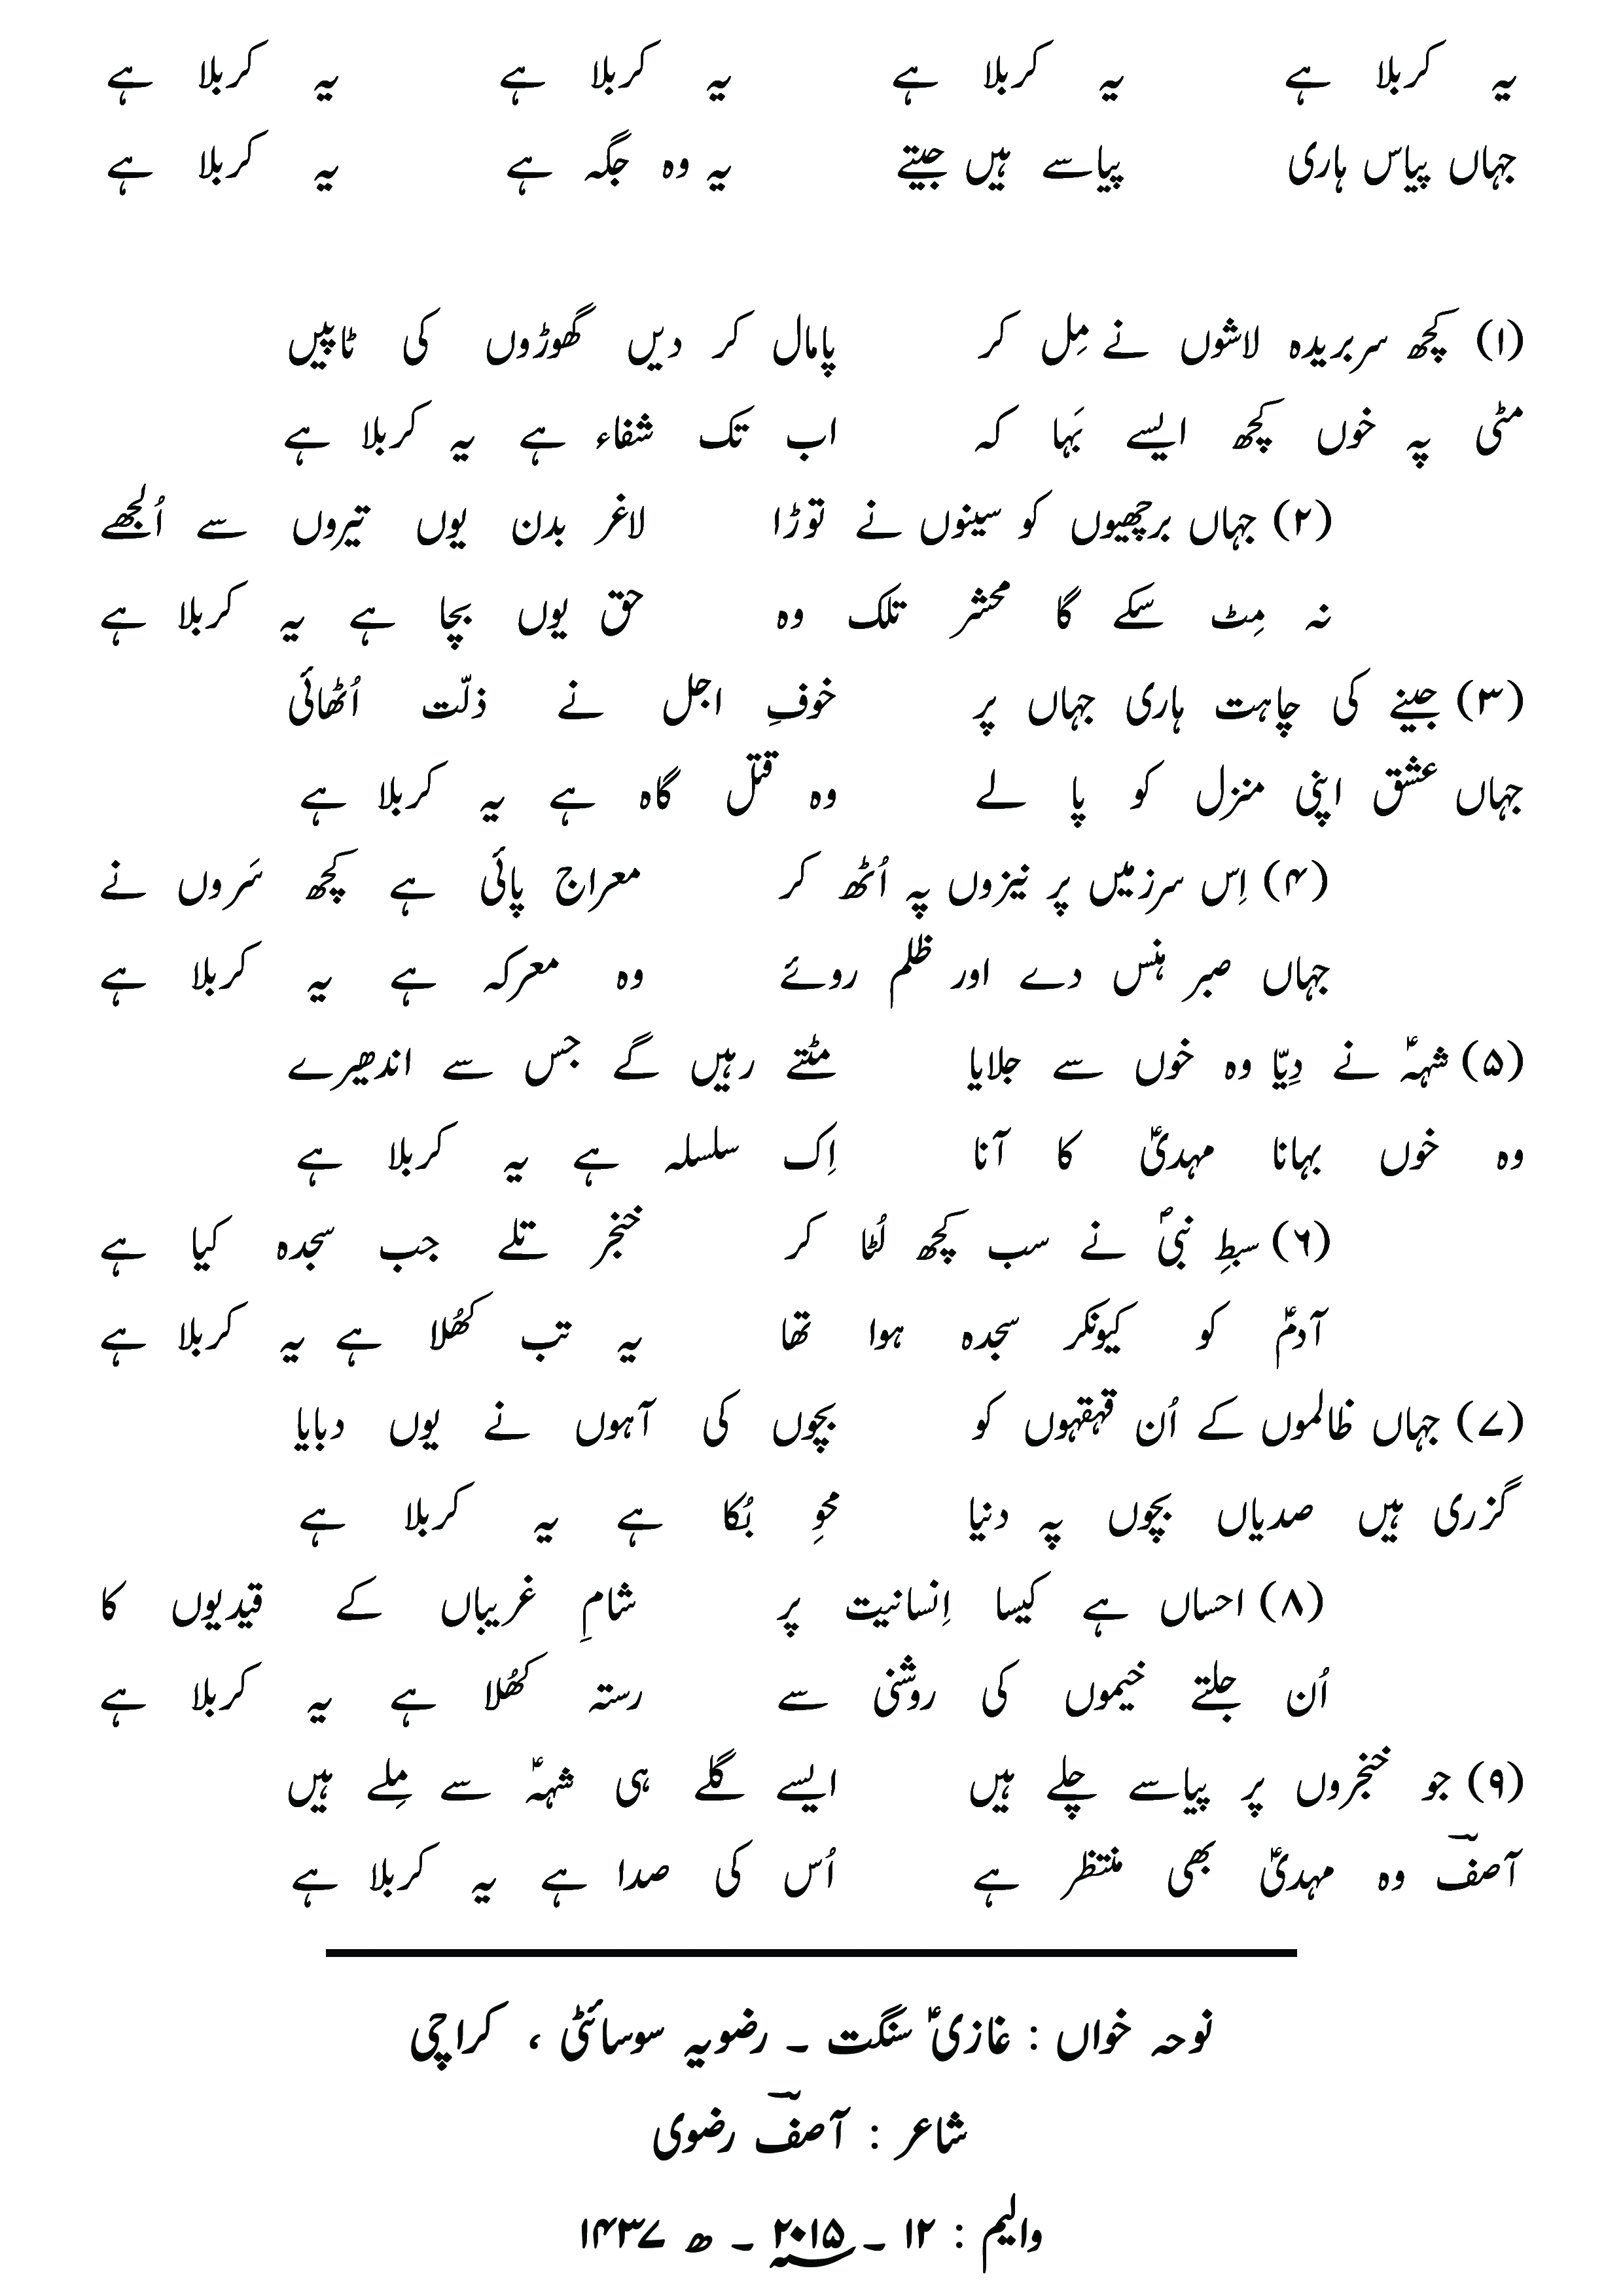 یہ کربلا ہے یہ کربلا ہے یہ کربلا ہے یہ کربلا ہے
جہاں پیاس ہاری پیاسے ہیں جیتے یہ وہ جگہ ہے یہ کربلا ہے
(۱) کچھ سربریدہ لاشوں نے مِل کر پامال کر دیں گھوڑوں کی ٹاپیں
مٹی پہ خوں کچھ ایسے بَہا کہ اب تک شفاء ہے یہ کربلا ہے
(۲) جہاں برچھیوں کو سینوں نے توڑا لاغر بدن یوں تیروں سے اُلجھے
نہ مِٹ سکے گا محشر تلک وہ حق یوں بچا ہے یہ کربلا ہے
(۳) جینے کی چاہت ہاری جہاں پر خوفِ اجل نے ذلّت اُٹھائی
جہاں عشق اپنی منزل کو پا لے وہ قتل گاہ ہے یہ کربلا ہے
(۴) اِس سرزمیں پر نیزوں پہ اُٹھ کر معراج پائی ہے کچھ سَروں نے
جہاں صبر ہنس دے اور ظلم روئے وہ معرکہ ہے یہ کربلا ہے
(۵) شہہؑ نے دِیّا وہ خوں سے جلایا مٹتے رہیں گے جس سے اندھیرے
وہ خوں بہانا مہدیؑ کا آنا اِک سلسلہ ہے یہ کربلا ہے
(۶) سبطِ نبیؐ نے سب کچھ لُٹا کر خنجر تلے جب سجدہ کیا ہے
آدمؑ کو کیونکر سجدہ ہوا تھا یہ تب کھُلا ہے یہ کربلا ہے
(۷) جہاں ظالموں کے اُن قہقہوں کو بچوں کی آہوں نے یوں دبایا
گزری ہیں صدیاں بچوں پہ دنیا محوِ بُکا ہے یہ کربلا ہے
(۸) احساں ہے کیسا اِنسانیت پر شامِ غریباں کے قیدیوں کا
اُن جلتے خیموں کی روشنی سے رستہ کھُلا ہے یہ کربلا ہے
(۹) جو خنجروں پر پیاسے چلے ہیں ایسے گلے ہی شہہؑ سے مِلے ہیں
آصفؔ وہ مہدیؑ بھی منتظر ہے اُس کی صدا ہے یہ کربلا ہے
نوحہ خواں : غازیؑ سنگت ۔ رضویہ سوسائٹی ، کراچی
شاعر : آصفؔ رضوی
والیم : ۱۲ ۔ ؁۲۰۱۵ ۔ ھ ۱۴۳۷